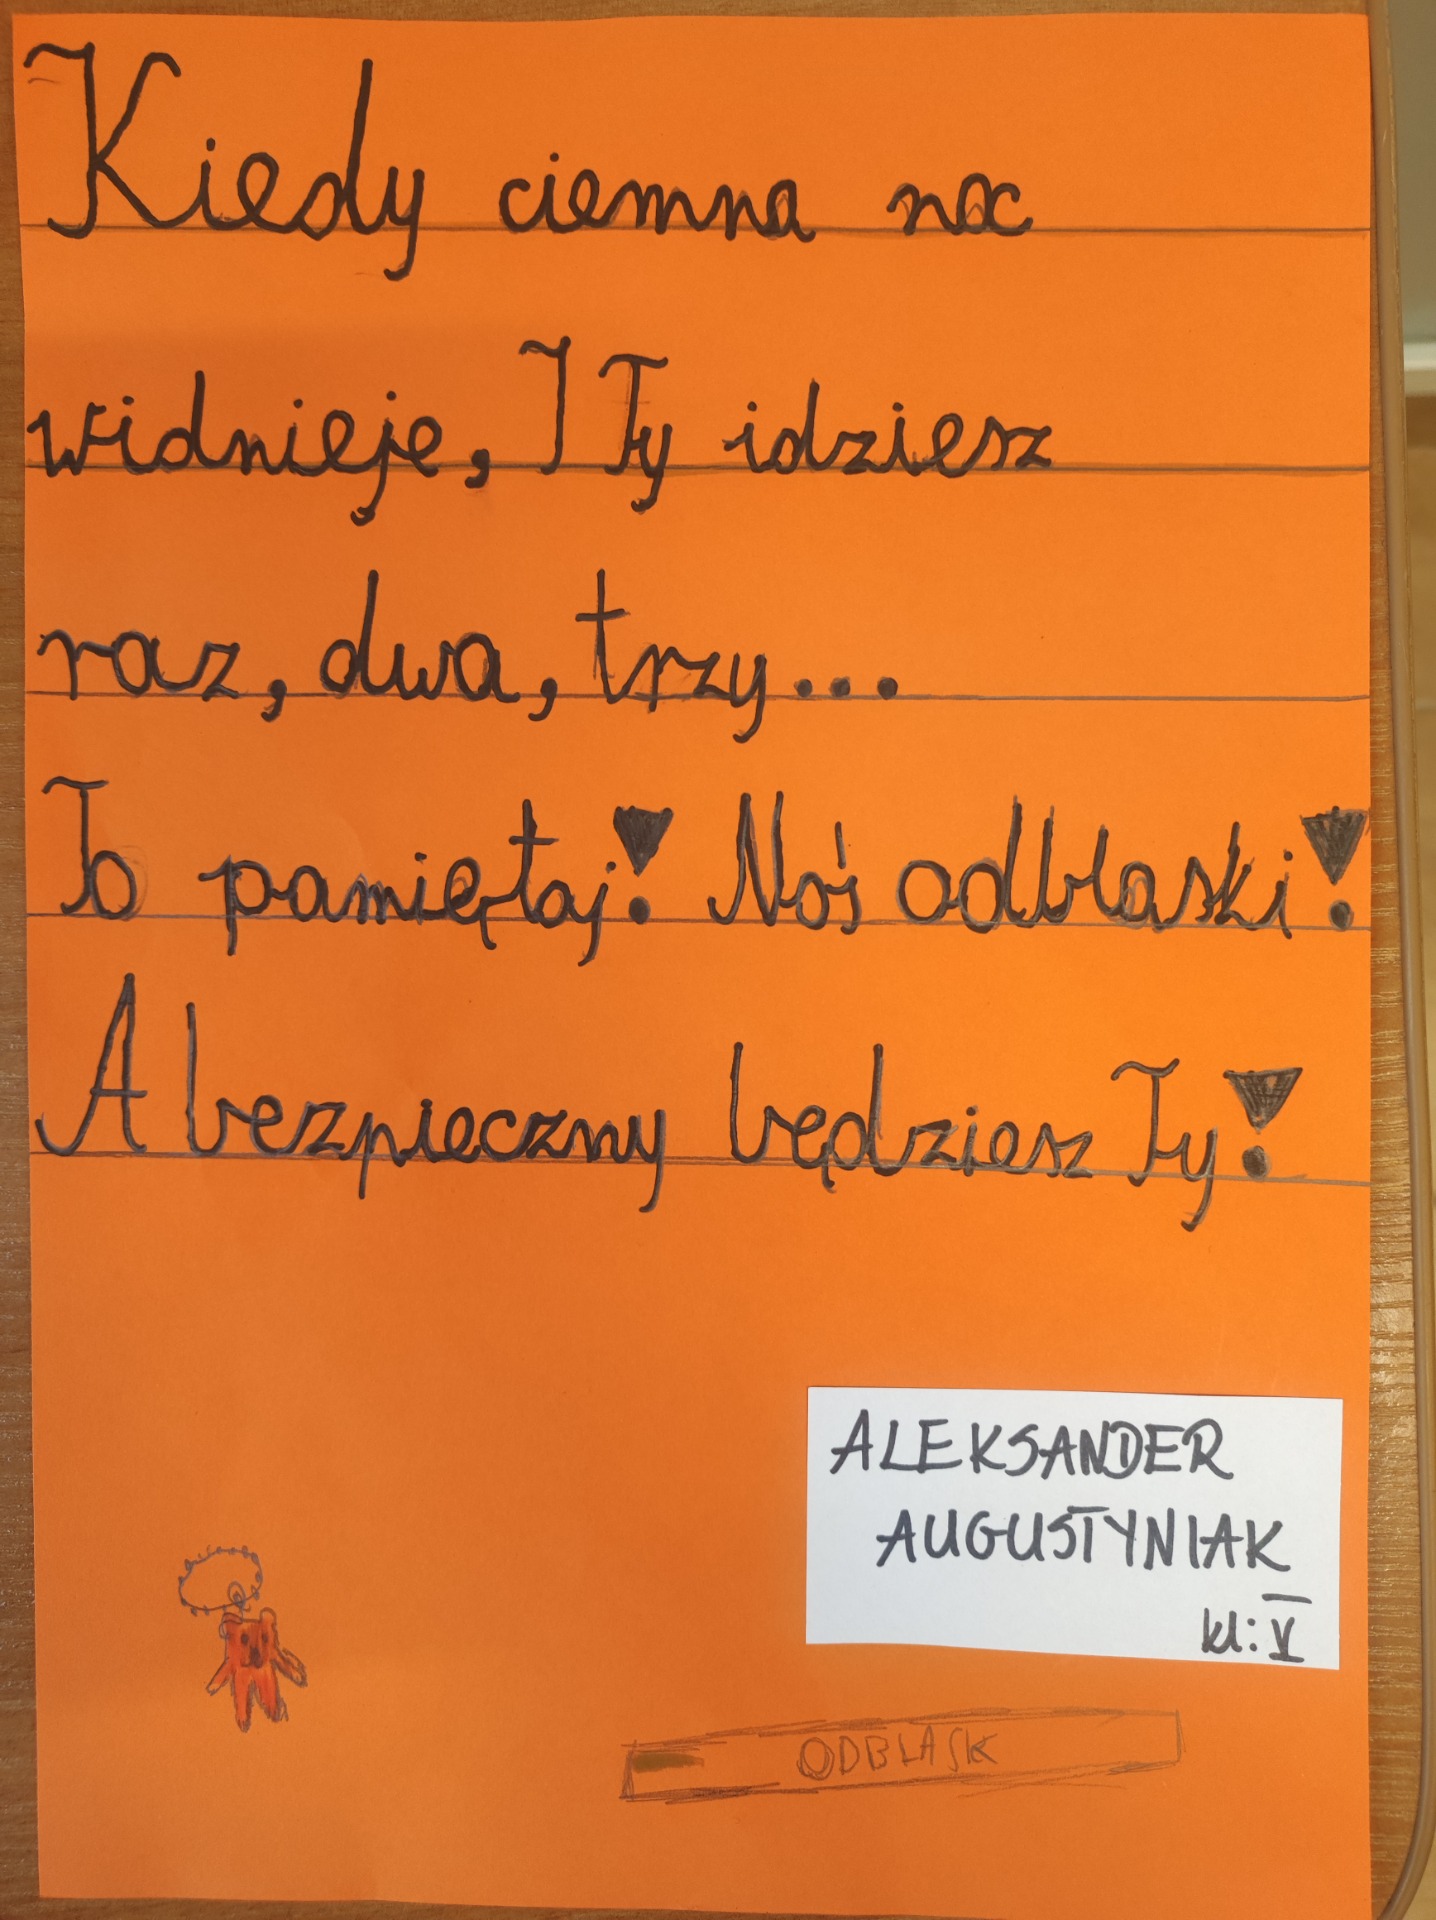 Kiedy ciemna noc
widnieje, I Ty idziesz
raz, dwa, trzy...
To pamiętaj! Noś odblaski!
A bezpieczny będziesz Ty!
ALEKSANDER
AUGUSTYNIAK
kl: V
ODBLASK